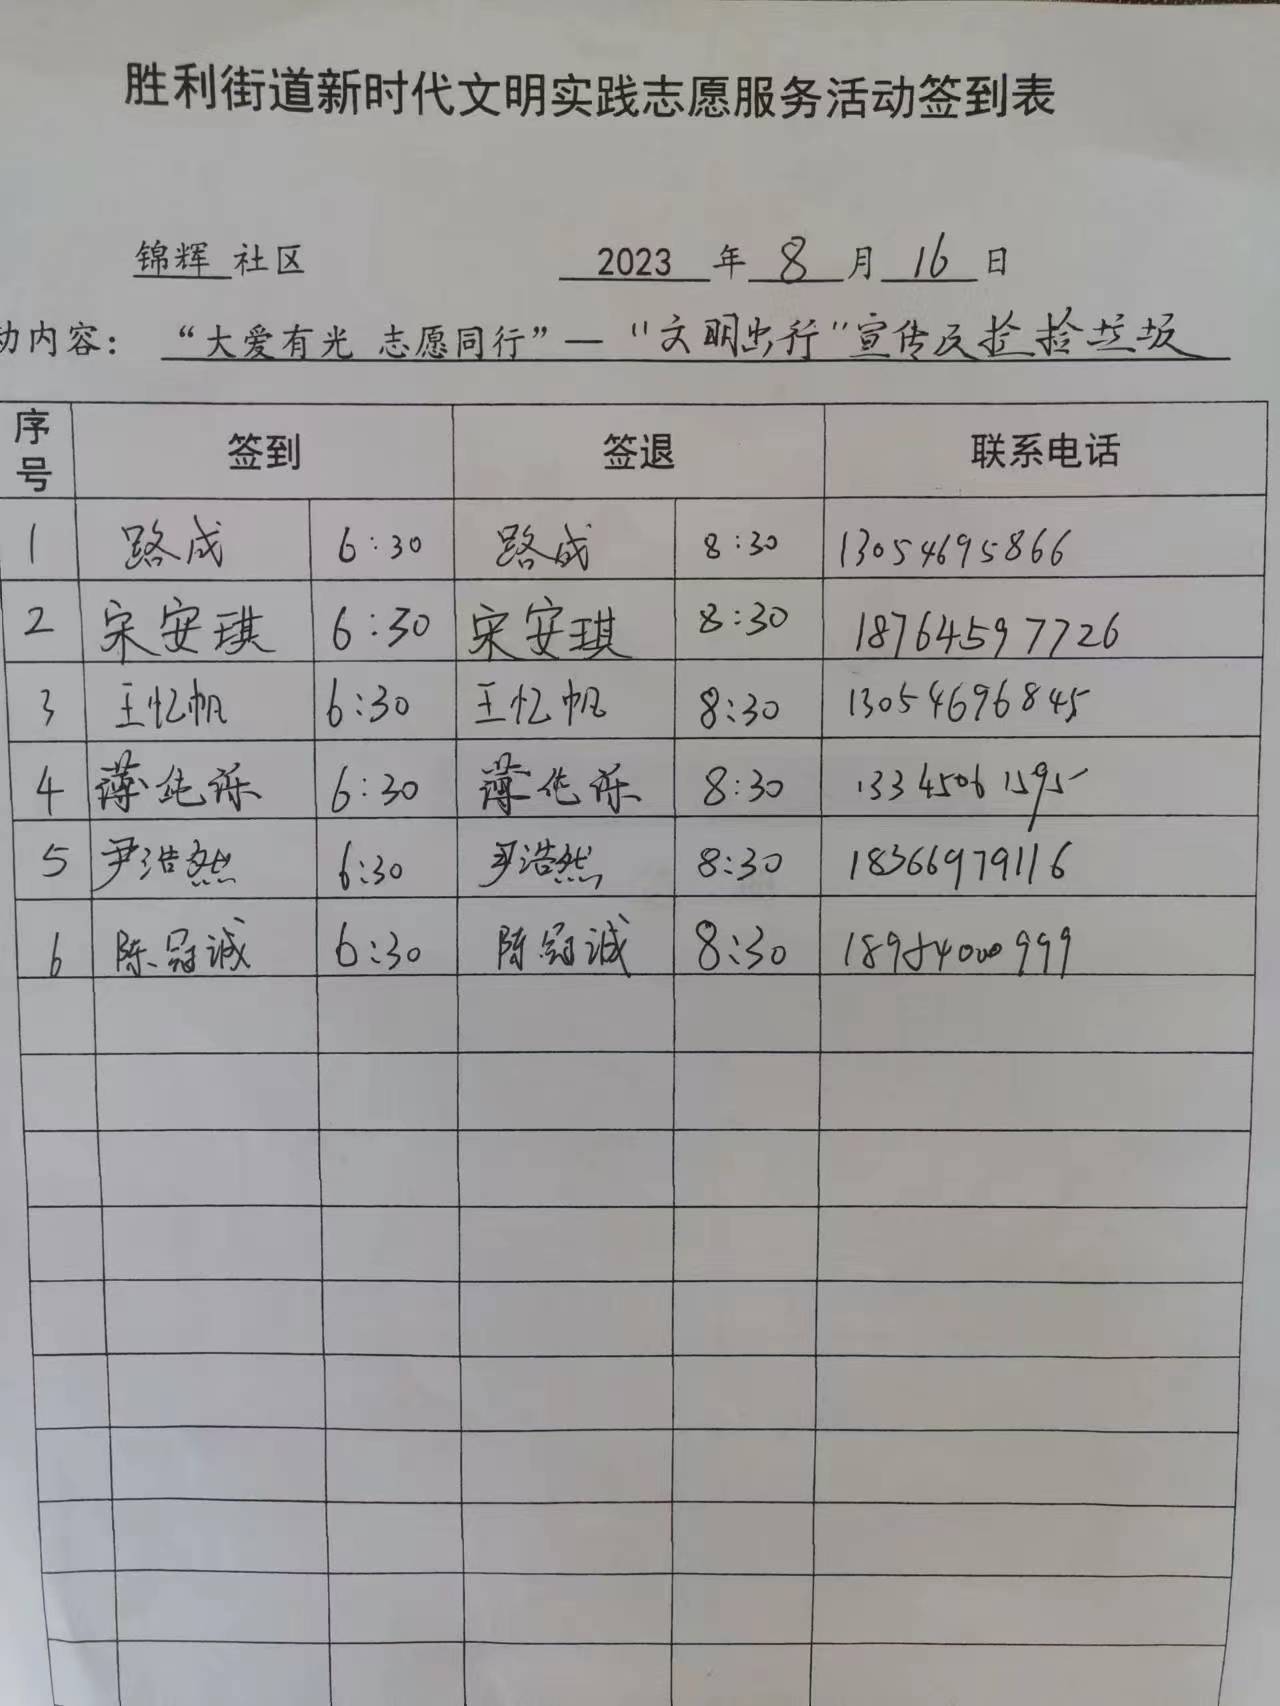 胜利街道新时代文明实践志愿服务活动签到表
锦辉 社区 2023 年 8 月 16 日
动内容：“大爱有光 志愿同行”—“文明出行”宣传及捡拾垃圾
序号 签到 签退 联系电话
1 路成 6:30 路成 8:30 13054695866
2 宋安琪 6:30 宋安琪 8:30 18764597726
3 王忆帆 6:30 王忆帆 8:30 13054696845
4 6:30 8:30 13345061595
5 尹浩然 6:30 尹浩然 8:30 18366979116
6 陈冠诚 6:30 陈冠诚 8:30 18954000999